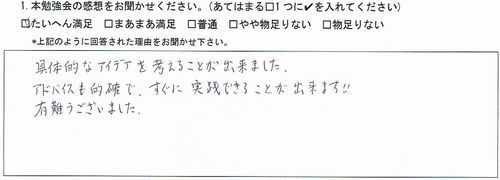 1.本勉強会の感想をお聞かせください。(あてはまる□1つに✔を入れてください)
☑たいへん満足 □まあまあ満足 □普通 □やや物足りない □物足りない
*上記のように回答された理由をお聞かせ下さい。
具体的なアイデアを考えることが出来ました。
アドバイスも的確で、すぐに実践できることが出来ます!!
有難うございました。